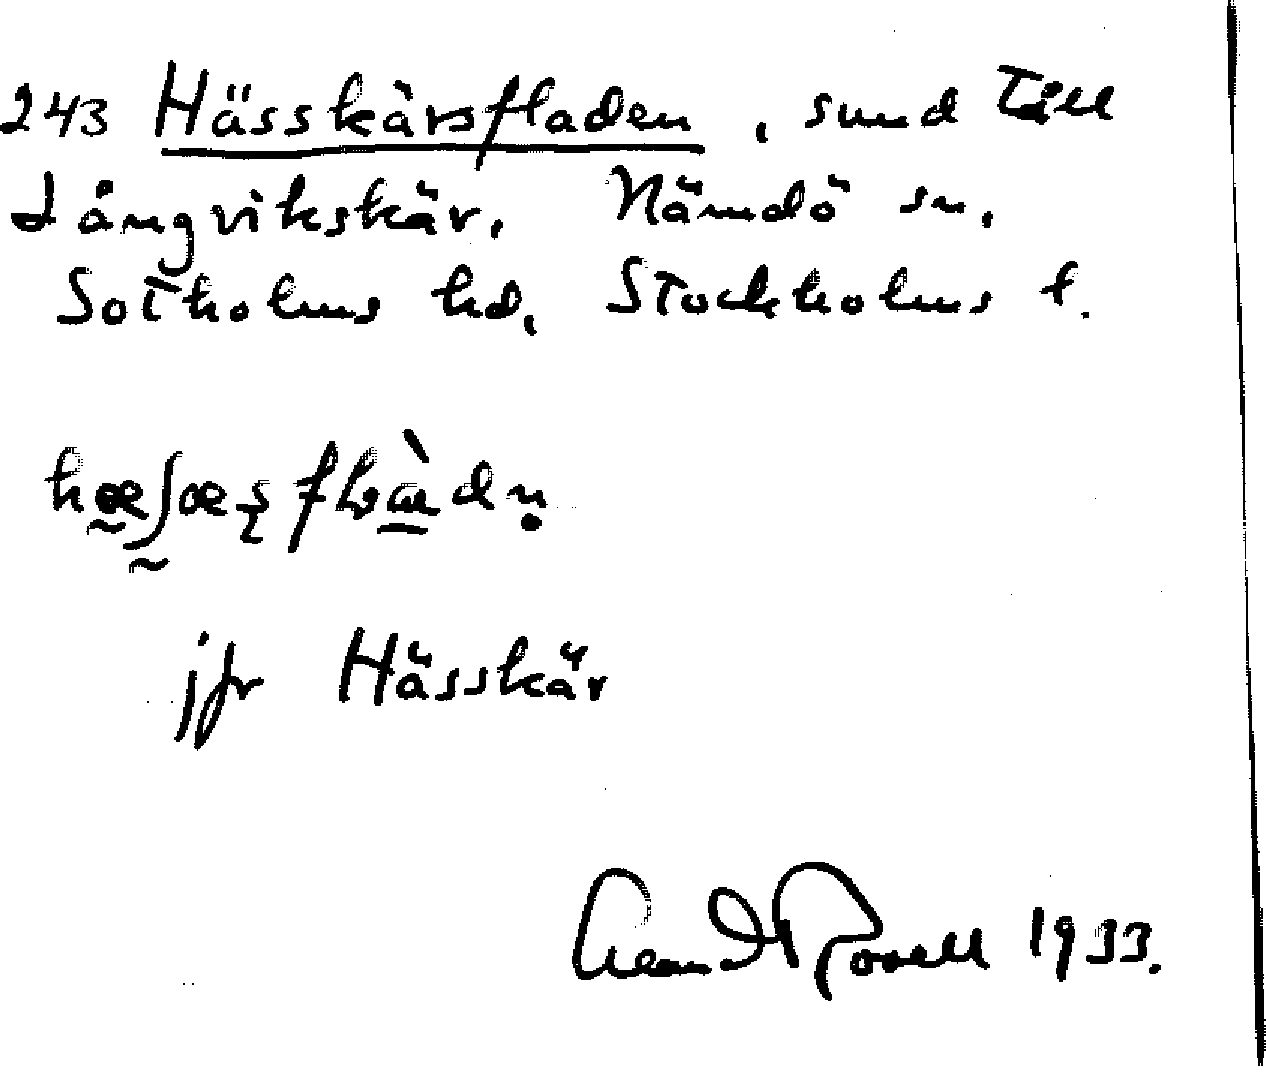 243 Hässkärsfladen, sund till
Långvikskär. Nämdö sn.
Sotholms hd. Stockholms l.
jfr Hässkär
1933.